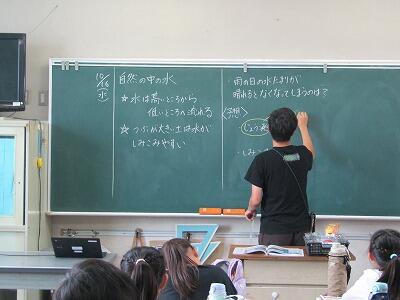 10/16
(水)
自然の中の水
☆水は高いところから
低いところへ流れる
☆つぶが大きい土は水が
しみこみやすい
雨の日の水たまりが
晴れるとなくなってしまうのは?
<予想>
・しみこ